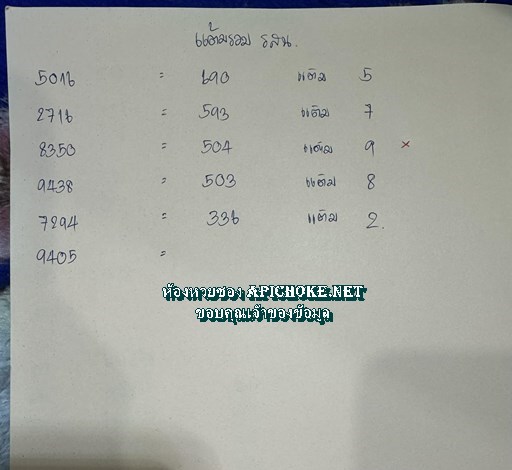 แต้มรวม รสน.
5016 = 690 แต้ม 5
2716 = 593 แต้ม 7
8350 = 504 แต้ม 9 ×
9438 = 503 แต้ม 8
7294 = 336 แต้ม 2.
9405 =
ห้องหวยซอง APICHOKE.NET
ขอบคุณเจ้าของข้อมูล